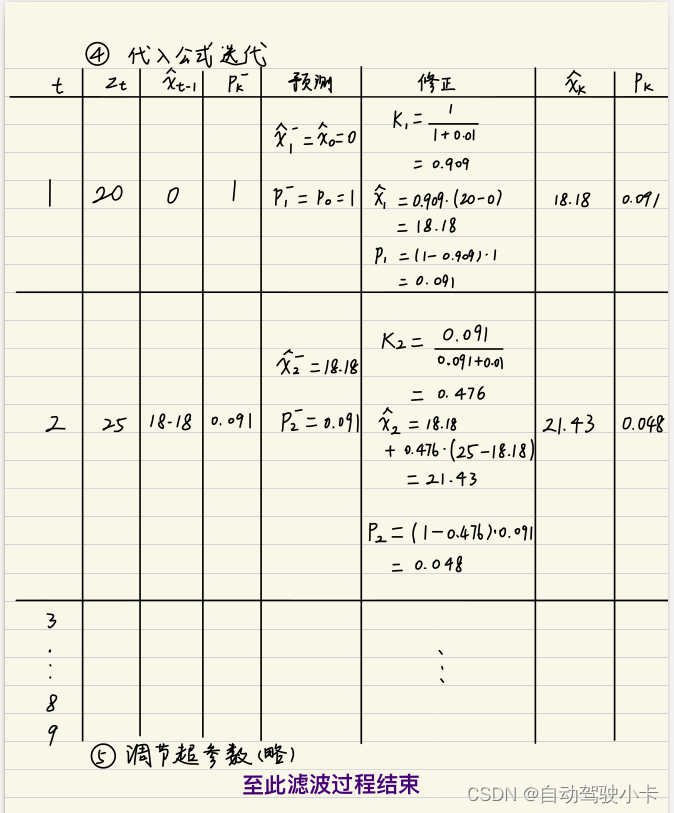 ④ 代入公式迭代
t Zt x̂t-1 Pk⁻ 预测 修正 x̂k Pk
1 20 0 1
x̂1⁻ = x̂0 = 0
P1⁻ = P0 = 1
K1 = 1/(1+0.01)
= 0.909
x̂1 = 0.909·(20-0)
= 18.18
P1 = (1-0.909)·1
= 0.091
18.18 0.091
2 25 18-18 0.091
x̂2⁻ = 18.18
P2⁻ = 0.091
K2 = 0.091/(0.091+0.01)
= 0.476
x̂2 = 18.18
+ 0.476·(25-18.18)
= 21.43
P2 = (1-0.476)·0.091
= 0.048
21.43 0.048
3
⋮ ⋮
8
9
⑤ 调节超参数(略)
至此滤波过程结束
CSDN @自动驾驶小卡